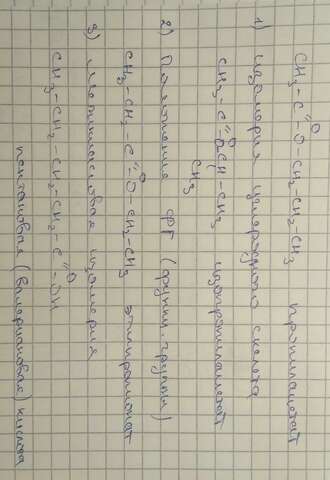 CH₃-C=O-O-CH₂-CH₂-CH₃ пропилацетат
1) изомерия углеродного скелета
CH₃-C=O-O-CH-CH₃ изопропилацетат
CH₃
2) Положение ФГ (функц. группы)
CH₃-CH₂-C=O-O-CH₂-CH₃ этилпропионат
3) Межклассовая изомерия
CH₃-CH₂-CH₂-CH₂-C=O-OH
пентановая (валериановая) кислота